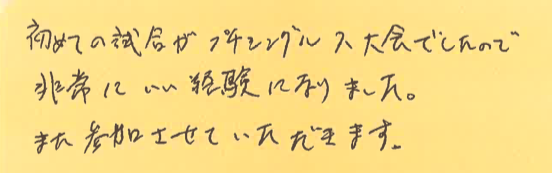 初めての試合がプチシングルス大会でしたので
非常にいい経験になりました。
また参加させていただきます。